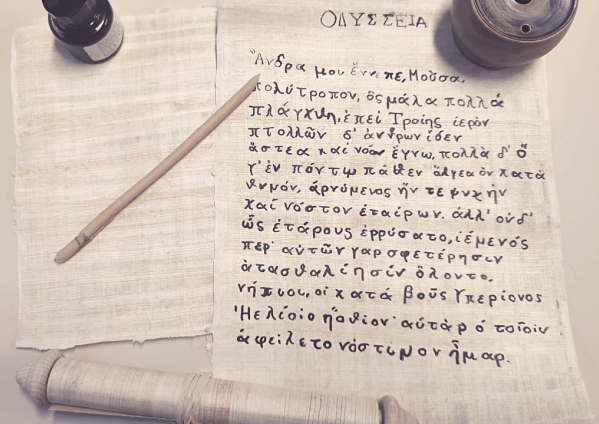 ΟΔΥΣΣΕΙΑ
Ἄνδρα μου ἔννεπε, Μοῦσα,
πολύτροπον, ὃς μάλα πολλὰ
πλάγχθη, ἐπεὶ Τροίης ἱερὸν
πτολλῶν δ' ἀνθρων ἰδεν
ἄστεα καὶ νόον ἔγνω, πολλὰ δ' ὅ
γ' ἐν πόντῳ πάθεν ἄλγεα ὃν κατὰ
θυμόν, ἀρνύμενος ἥν τε ψυχὴν
καὶ νόστον ἑταίρων. ἀλλ' οὐδ'
ὧς ἑτάρους ἐρρύσατο, ἱέμενός
περ· αὐτῶν γαρ σφετέρησιν
ἀτασθαλίῃσιν ὄλοντο,
νήπιοι, οἳ κατὰ βοῦς Ὑπερίονος
Ἠελίοιο ἤσθιον· αὐτὰρ ὁ τοῖσιν
ἀφείλετο νόστιμον ἦμαρ.